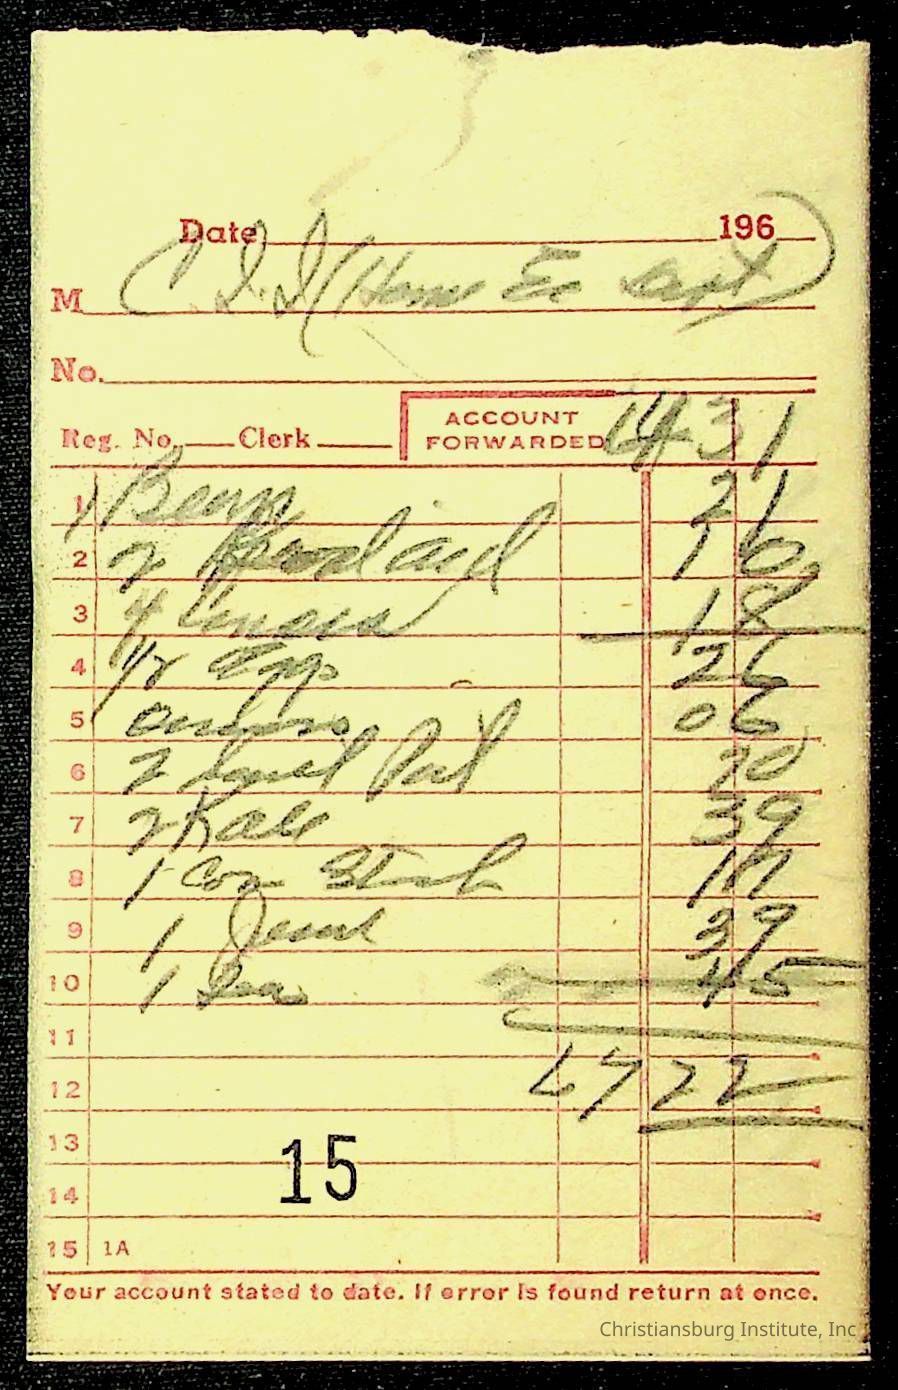 Date 196
M C. I. I (Home Ec Dept)
No.
Reg. No. Clerk ACCOUNT FORWARDED 64 31
1 1 Beans 21
2 2 10
3 4 18
4 1/2 Eggs 26
5 onions 06
6 2 20
7 2 Kale 39
8 1 Corn Starch 17
9 1 39
10 1 45
11
12 67 22
13
15
14
15 1A
Your account stated to date. If error is found return at once.
Christiansburg Institute, Inc